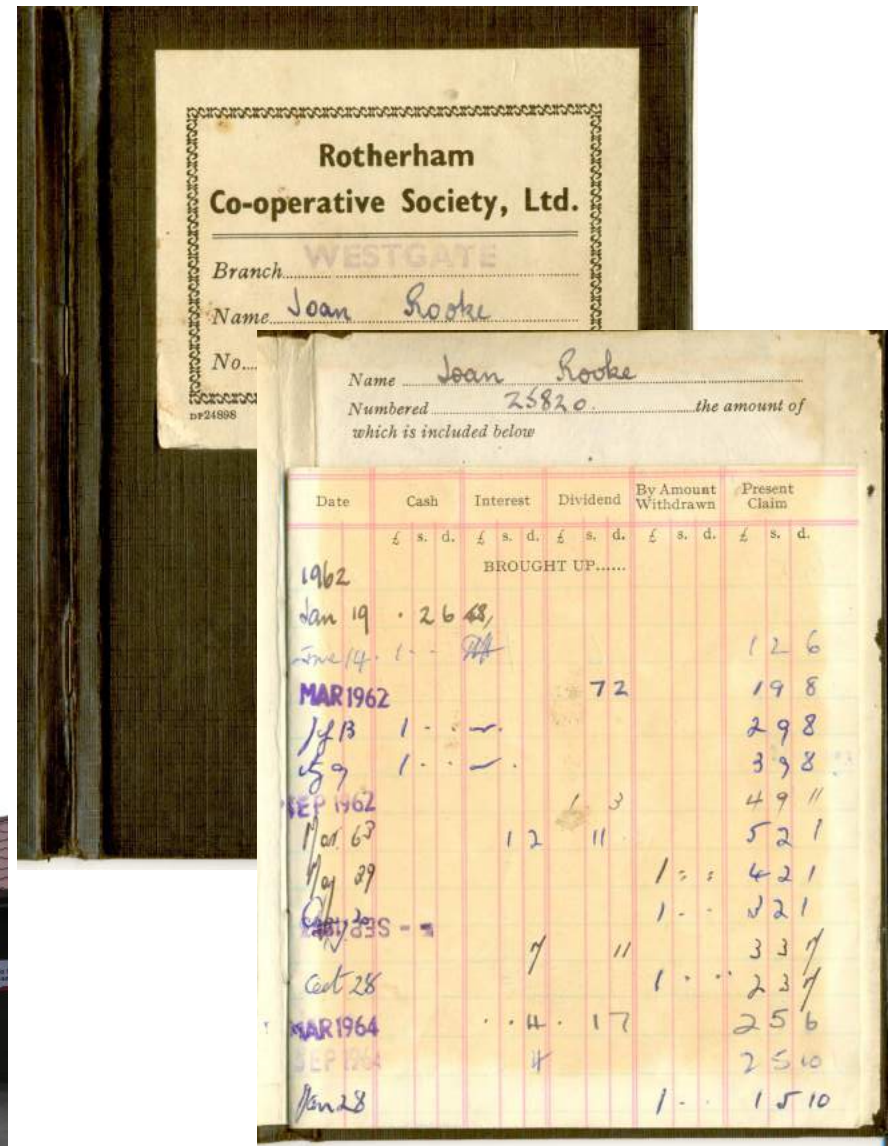 Rotherham
Co-operative Society, Ltd.
WESTGATE
Branch
Name Joan Rooke
No.
DP24898
Name Joan Rooke
Numbered 25820. the amount of
which is included below
Date Cash Interest Dividend By Amount Withdrawn Present Claim
£ s. d. £ s. d. £ s. d. £ s. d. £ s. d.
BROUGHT UP......
1962
Jan 19 . 2 6
June 14. 1 - - 1 2 6
MAR 1962 7 2 1 9 8
1 . . 2 9 8
9 1 . . 3 9 8
SEP 1962 1 3 4 9 11
Mar. 63 1 2 11 5 2 1
May 29 1 : : 4 2 1
1 - - 3 2 1
SEP
7 11 3 3 7
Oct 28 1 . .. 2 3 7
MAR 1964 . . 4 . 1 7 2 5 6
SEP 1964 4 2 5 10
Jan 28 1 - . 1 5 10